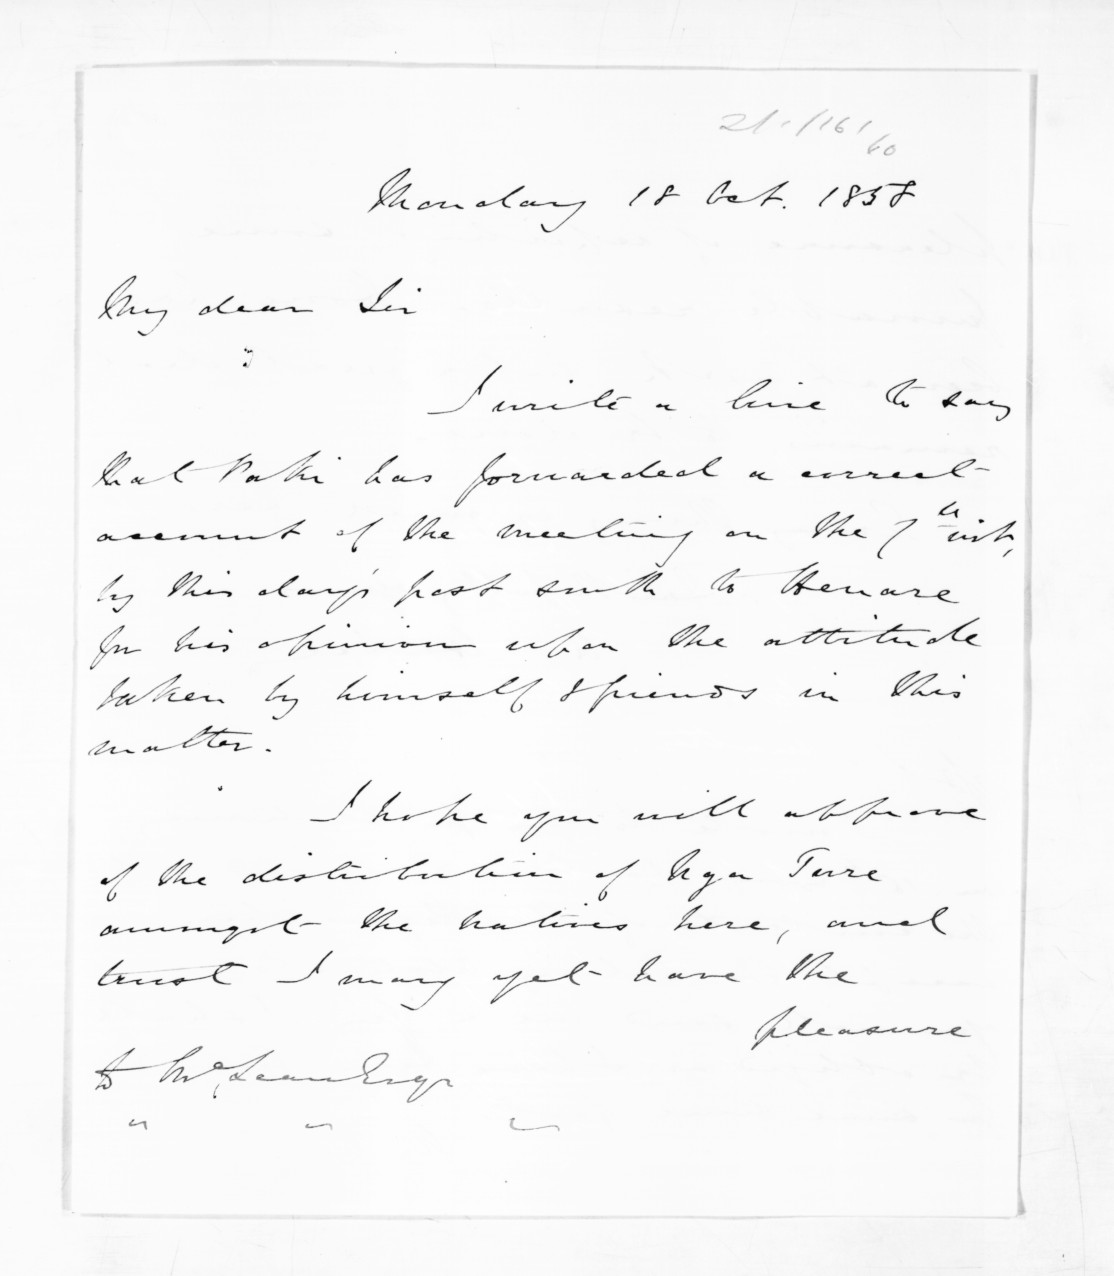 Monday 18 Oct. 1858
My dear Sir
I write a line to say
that has forwarded a correct
account of the meeting on the 7th inst,
by this day's post south to Henare
for his opinion upon the attitude
taken by himself & friends in this
matter.
I hope you will approve
of the distribution of Nga Ture
amongst the natives here, and
trust I may yet have the
pleasure
McLean Esqr
" " "